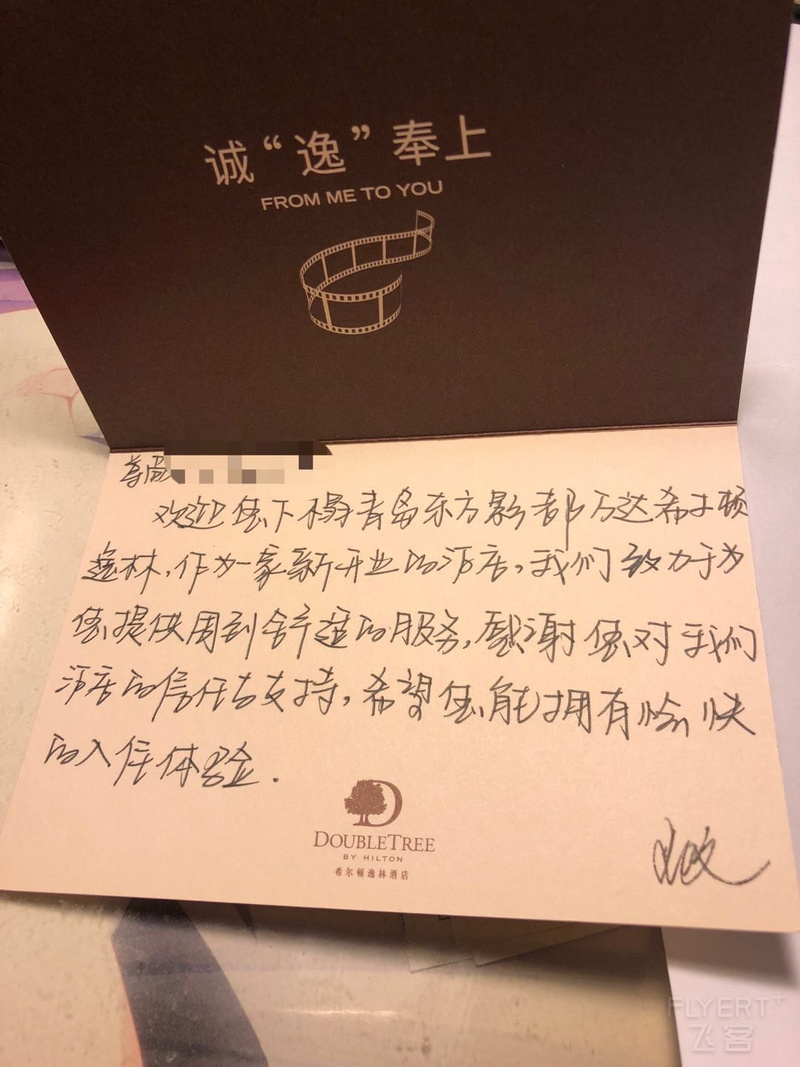 诚“逸”奉上
FROM ME TO YOU
尊
欢迎您下榻青岛东方影都万达希尔顿
逸林，作为一家新开业的酒店，我们致力于为
您提供周到舒适的服务，感谢您对我们
酒店的信任与支持，希望您能拥有愉快
的入住体验．
DOUBLETREE
BY HILTON
希尔顿逸林酒店
FLYERT+
飞客